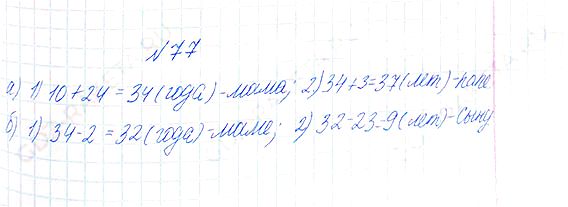 №77
а) 1) 10+24 = 34 (года) - мама; 2) 34+3=37 (лет) - папе
б) 1) 34-2 = 32 (года) - маме; 2) 32-23=9 (лет) - сыну